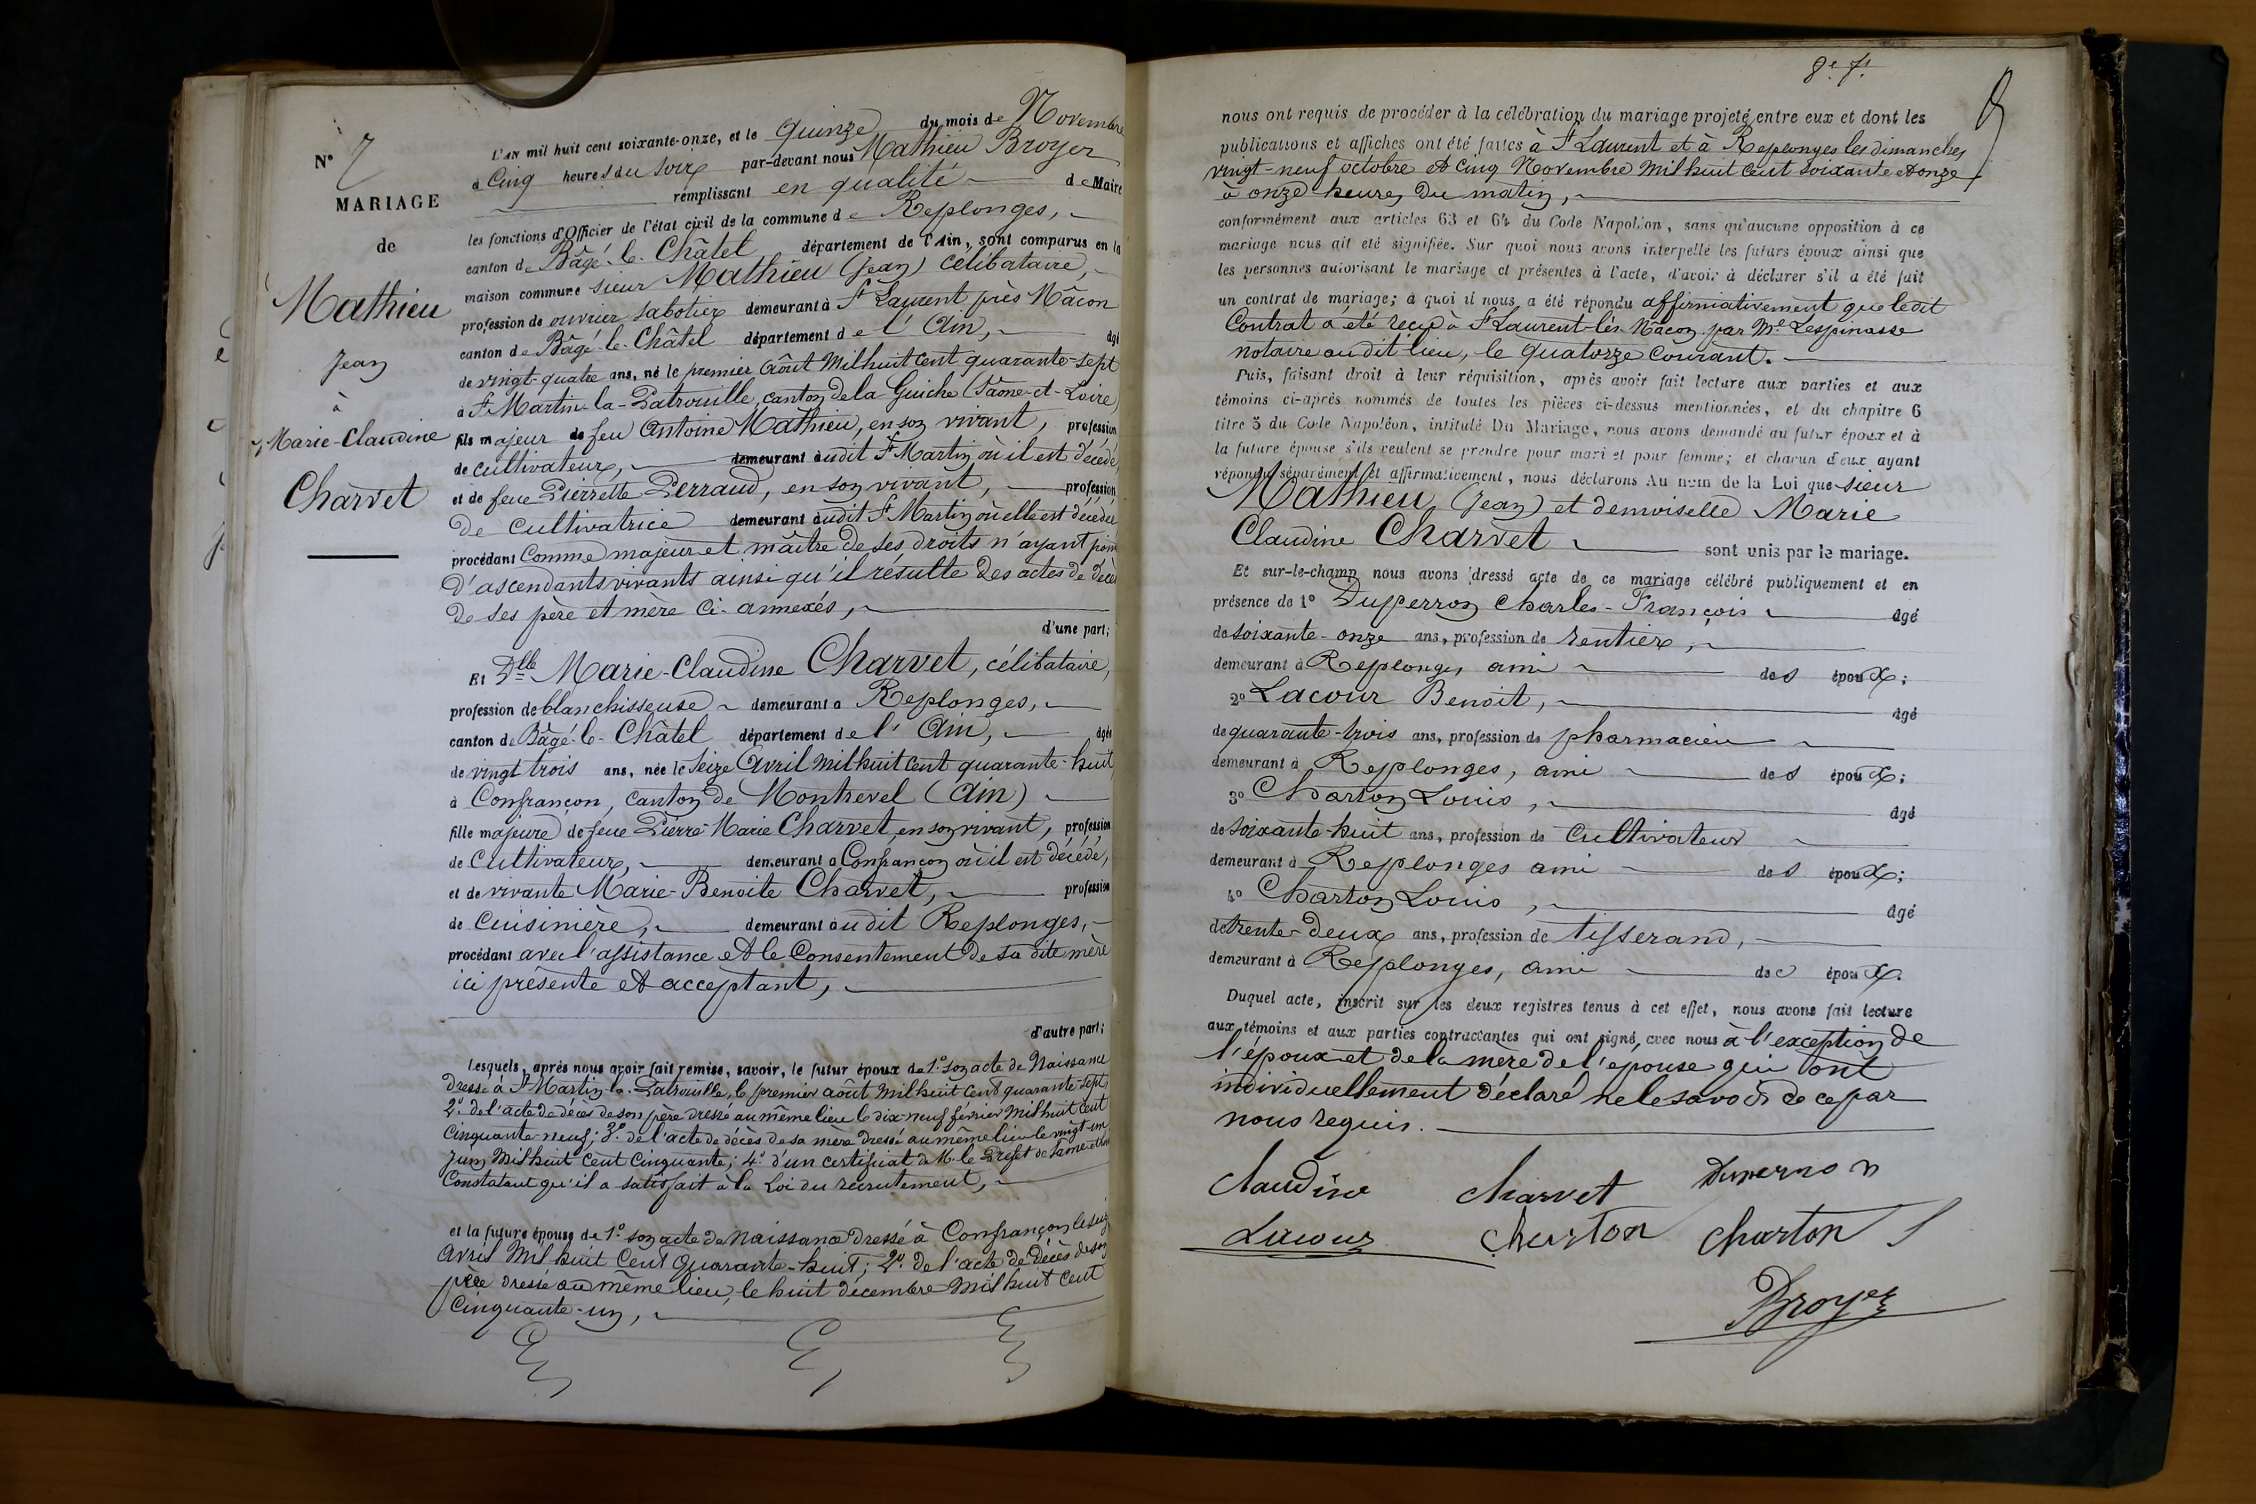 N° 7
MARIAGE
de
Mathieu
Jean
à
Marie-Claudine
Charvet
L'AN mil huit cent soixante-onze, et le quinze du mois de Novembre
à Cinq heures du soir par-devant nous Mathieu Broyer
remplissant en qualité de Maire
les fonctions d'Officier de l'état civil de la commune de Replonges,
canton de Bâgé-le-Châtel département de l'Ain, sont comparus en la
maison commune sieur Mathieu (Jean) célibataire,
profession de ouvrier sabotier demeurant à St Laurent près Mâcon
canton de Bâgé-le-Châtel département de l'Ain, âgé
de vingt-quatre ans, né le premier Août Mil huit Cent quarante-sept
à St Martin-la-Patrouille, canton de la Guiche (Saône-et-Loire)
fils majeur de feu Antoine Mathieu, en son vivant, profession
de cultivateur, demeurant audit St Martin où il est décédé,
et de feue Pierrette Perraud, en son vivant, profession
de cultivatrice demeurant audit St Martin où elle est décédée
procédant Comme majeur et maître de ses droits n'ayant point
d'ascendants vivants ainsi qu'il résulte des actes de décès
de ses père et mère ci-annexés,
d'une part;
Et Dlle Marie-Claudine Charvet, célibataire,
profession de blanchisseuse demeurant à Replonges,
canton de Bâgé-le-Châtel département de l'Ain, âgée
de vingt trois ans, née le Seize Avril Mil huit Cent quarante-huit
à Confrançon, Canton de Montrevel (Ain)
fille majeure de feue Pierre-Marie Charvet, en son vivant, profession
de Cultivateur, demeurant à Confrançon où il est décédé,
et de vivante Marie-Benoite Charvet, profession
de Cuisinière, demeurant audit Replonges,
procédant avec l'assistance et le Consentement de sa dite mère
ici présente et acceptant,
d'autre part;
Lesquels, après nous avoir fait remise, savoir, le futur époux de 1° son acte de Naissance
dressé à St Martin-la-Patrouille, le premier août Mil huit Cent quarante-sept
2° de l'acte de décès de son père dressé au même lieu le dix-neuf février Mil huit Cent
Cinquante neuf; 3° de l'acte de décès de sa mère dressé au même lieu le vingt-un
Juin Mil huit Cent Cinquante; 4° d'un certificat de M. le Préfet de Saône-et-Loire
Constatant qu'il a satisfait à la Loi du recrutement,
et la future épouse de 1° son acte de Naissance dressé à Confrançon le seize
Avril Mil huit Cent Quarante-huit; 2° de l'acte de décès de son
père dressé au même lieu, le huit décembre Mil huit Cent
Cinquante-un,
8e f.
nous ont requis de procéder à la célébration du mariage projeté entre eux et dont les
publications et affiches ont été faites à St Laurent et à Replonges les dimanches
vingt-neuf octobre et Cinq Novembre Mil huit Cent soixante et onze
à onze heures du matin,
conformément aux articles 63 et 64 du Code Napoléon, sans qu'aucune opposition à ce
mariage nous ait été signifiée. Sur quoi nous avons interpellé les futurs époux ainsi que
les personnes autorisant le mariage et présentes à l'acte, d'avoir à déclarer s'il a été fait
un contrat de mariage; à quoi il nous a été répondu affirmativement que ledit
Contrat a été reçu à St Laurent-lès-Mâcon par Me Lespinasse
notaire audit lieu, le Quatorze Courant.
Puis, faisant droit à leur réquisition, après avoir fait lecture aux parties et aux
témoins ci-après nommés de toutes les pièces ci-dessus mentionnées, et du chapitre 6
titre 5 du Code Napoléon, intitulé Du Mariage, nous avons demandé au futur époux et à
la future épouse s'ils veulent se prendre pour mari et pour femme; et chacun d'eux ayant
répondu séparément et affirmativement, nous déclarons Au nom de la Loi que sieur
Mathieu (Jean) et demoiselle Marie
Claudine Charvet sont unis par le mariage.
Et sur-le-champ nous avons dressé acte de ce mariage célébré publiquement et en
présence de 1° Duperron Charles-François âgé
de soixante-onze ans, profession de rentier,
demeurant à Replonges ami des époux;
2° Lacour Benoit, âgé
de quarante-trois ans, profession de pharmacien
demeurant à Replonges, ami des époux;
3° Charton Louis, âgé
de soixante-huit ans, profession de Cultivateur
demeurant à Replonges ami des époux;
4° Charton Louis, âgé
de trente-deux ans, profession de tisserand,
demeurant à Replonges, ami des époux.
Duquel acte, inscrit sur les deux registres tenus à cet effet, nous avons fait lecture
aux témoins et aux parties contractantes qui ont signé avec nous à l'exception de
l'époux et de la mère de l'épouse qui ont
individuellement déclaré ne le savoir de ce par
nous requis.
Claudine Charvet Duperron
Lacour Charton Charton
Broyer